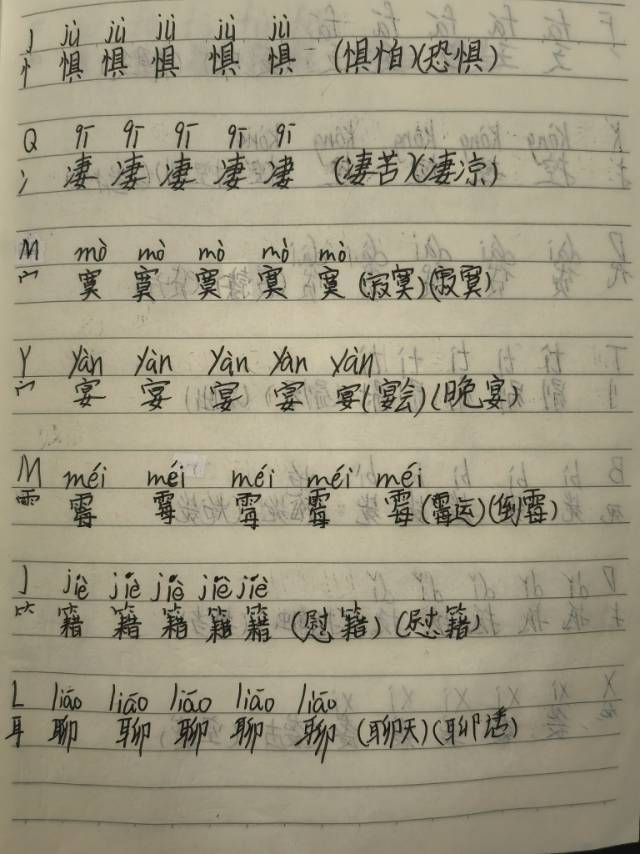 J jù jù jù jù jù
忄 惧 惧 惧 惧 惧 (惧怕)(恐惧)
Q qī qī qī qī qī
冫 凄 凄 凄 凄 凄 (凄苦)(凄凉)
M mò mò mò mò mò
宀 寞 寞 寞 寞 寞 (寂寞)(寂寞)
Y yàn yàn yàn yàn yàn
宀 宴 宴 宴 宴 宴 (宴会)(晚宴)
M méi méi méi méi méi
雨 霉 霉 霉 霉 霉 (霉运)(倒霉)
J jiè jiè jiè jiè jiè
⺮ 籍 籍 籍 籍 籍 (慰籍) (慰籍)
L liáo liáo liáo liáo liáo
耳 聊 聊 聊 聊 聊 (聊天)(聊话)